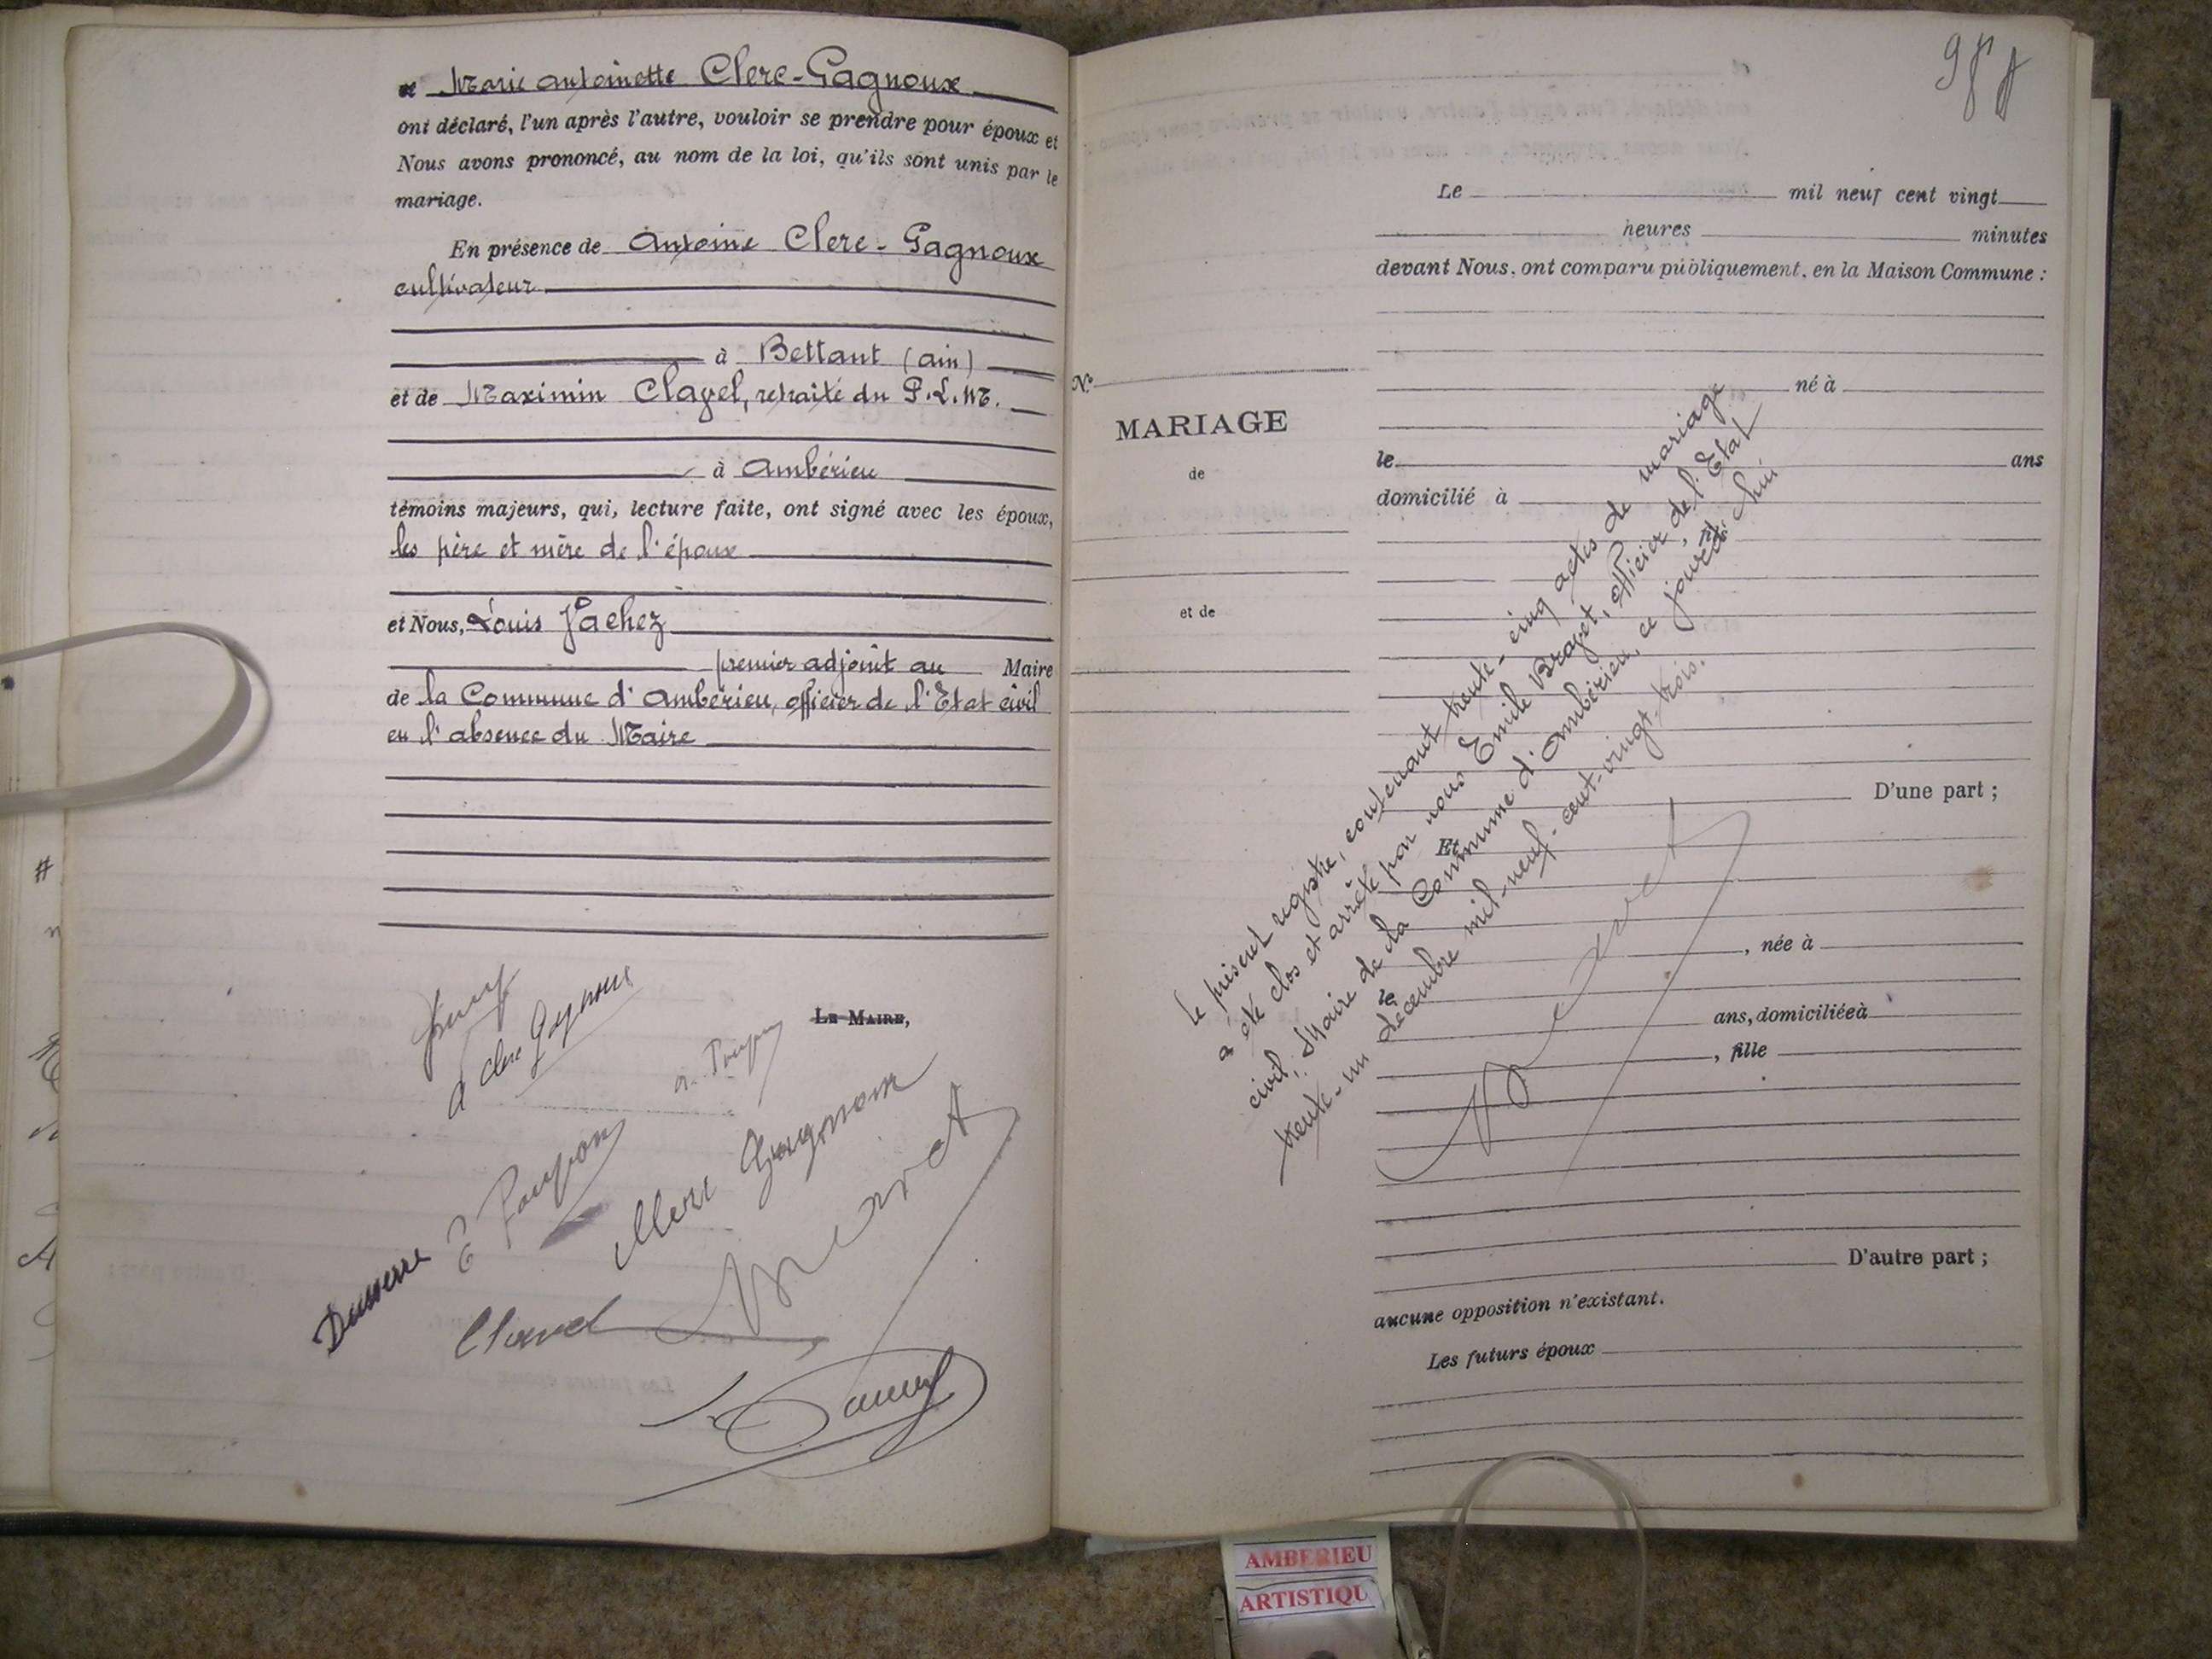 et Marie Antoinette Clerc-Gagnoux
ont déclaré, l'un après l'autre, vouloir se prendre pour époux et
Nous avons prononcé, au nom de la loi, qu'ils sont unis par le
mariage.
En présence de Antoine Clerc-Gagnoux
cultivateur
à Bettant (ain)
et de Maximin Clavel, retraité du P.L.M.
à Ambérieu
témoins majeurs, qui, lecture faite, ont signé avec les époux,
les père et mère de l'époux
et Nous, Louis
premier adjoint au Maire
de la Commune d'Ambérieu, officier de l'Etat civil
en l'absence du Maire
LE MAIRE,
A Clerc Gagnoux
Clerc Gagnoux
Clavel
98
Le mil neuf cent vingt
heures minutes
devant Nous, ont comparu publiquement, en la Maison Commune :
né à
N°
MARIAGE
de
et de
le ans
domicilié à
D'une part ;
Et
, née à
le
ans, domiciliée à
, fille
D'autre part ;
aucune opposition n'existant.
Les futurs époux
Le présent registre, contenant trente-cinq actes de mariage
a été clos et arrêté par nous Emile Bravet, officier de l'Etat
civil, Maire de la Commune d'Ambérieu, ce jourd'hui
trente-un décembre mil-neuf-cent-vingt-trois.
AMBERIEU
ARTISTIQU